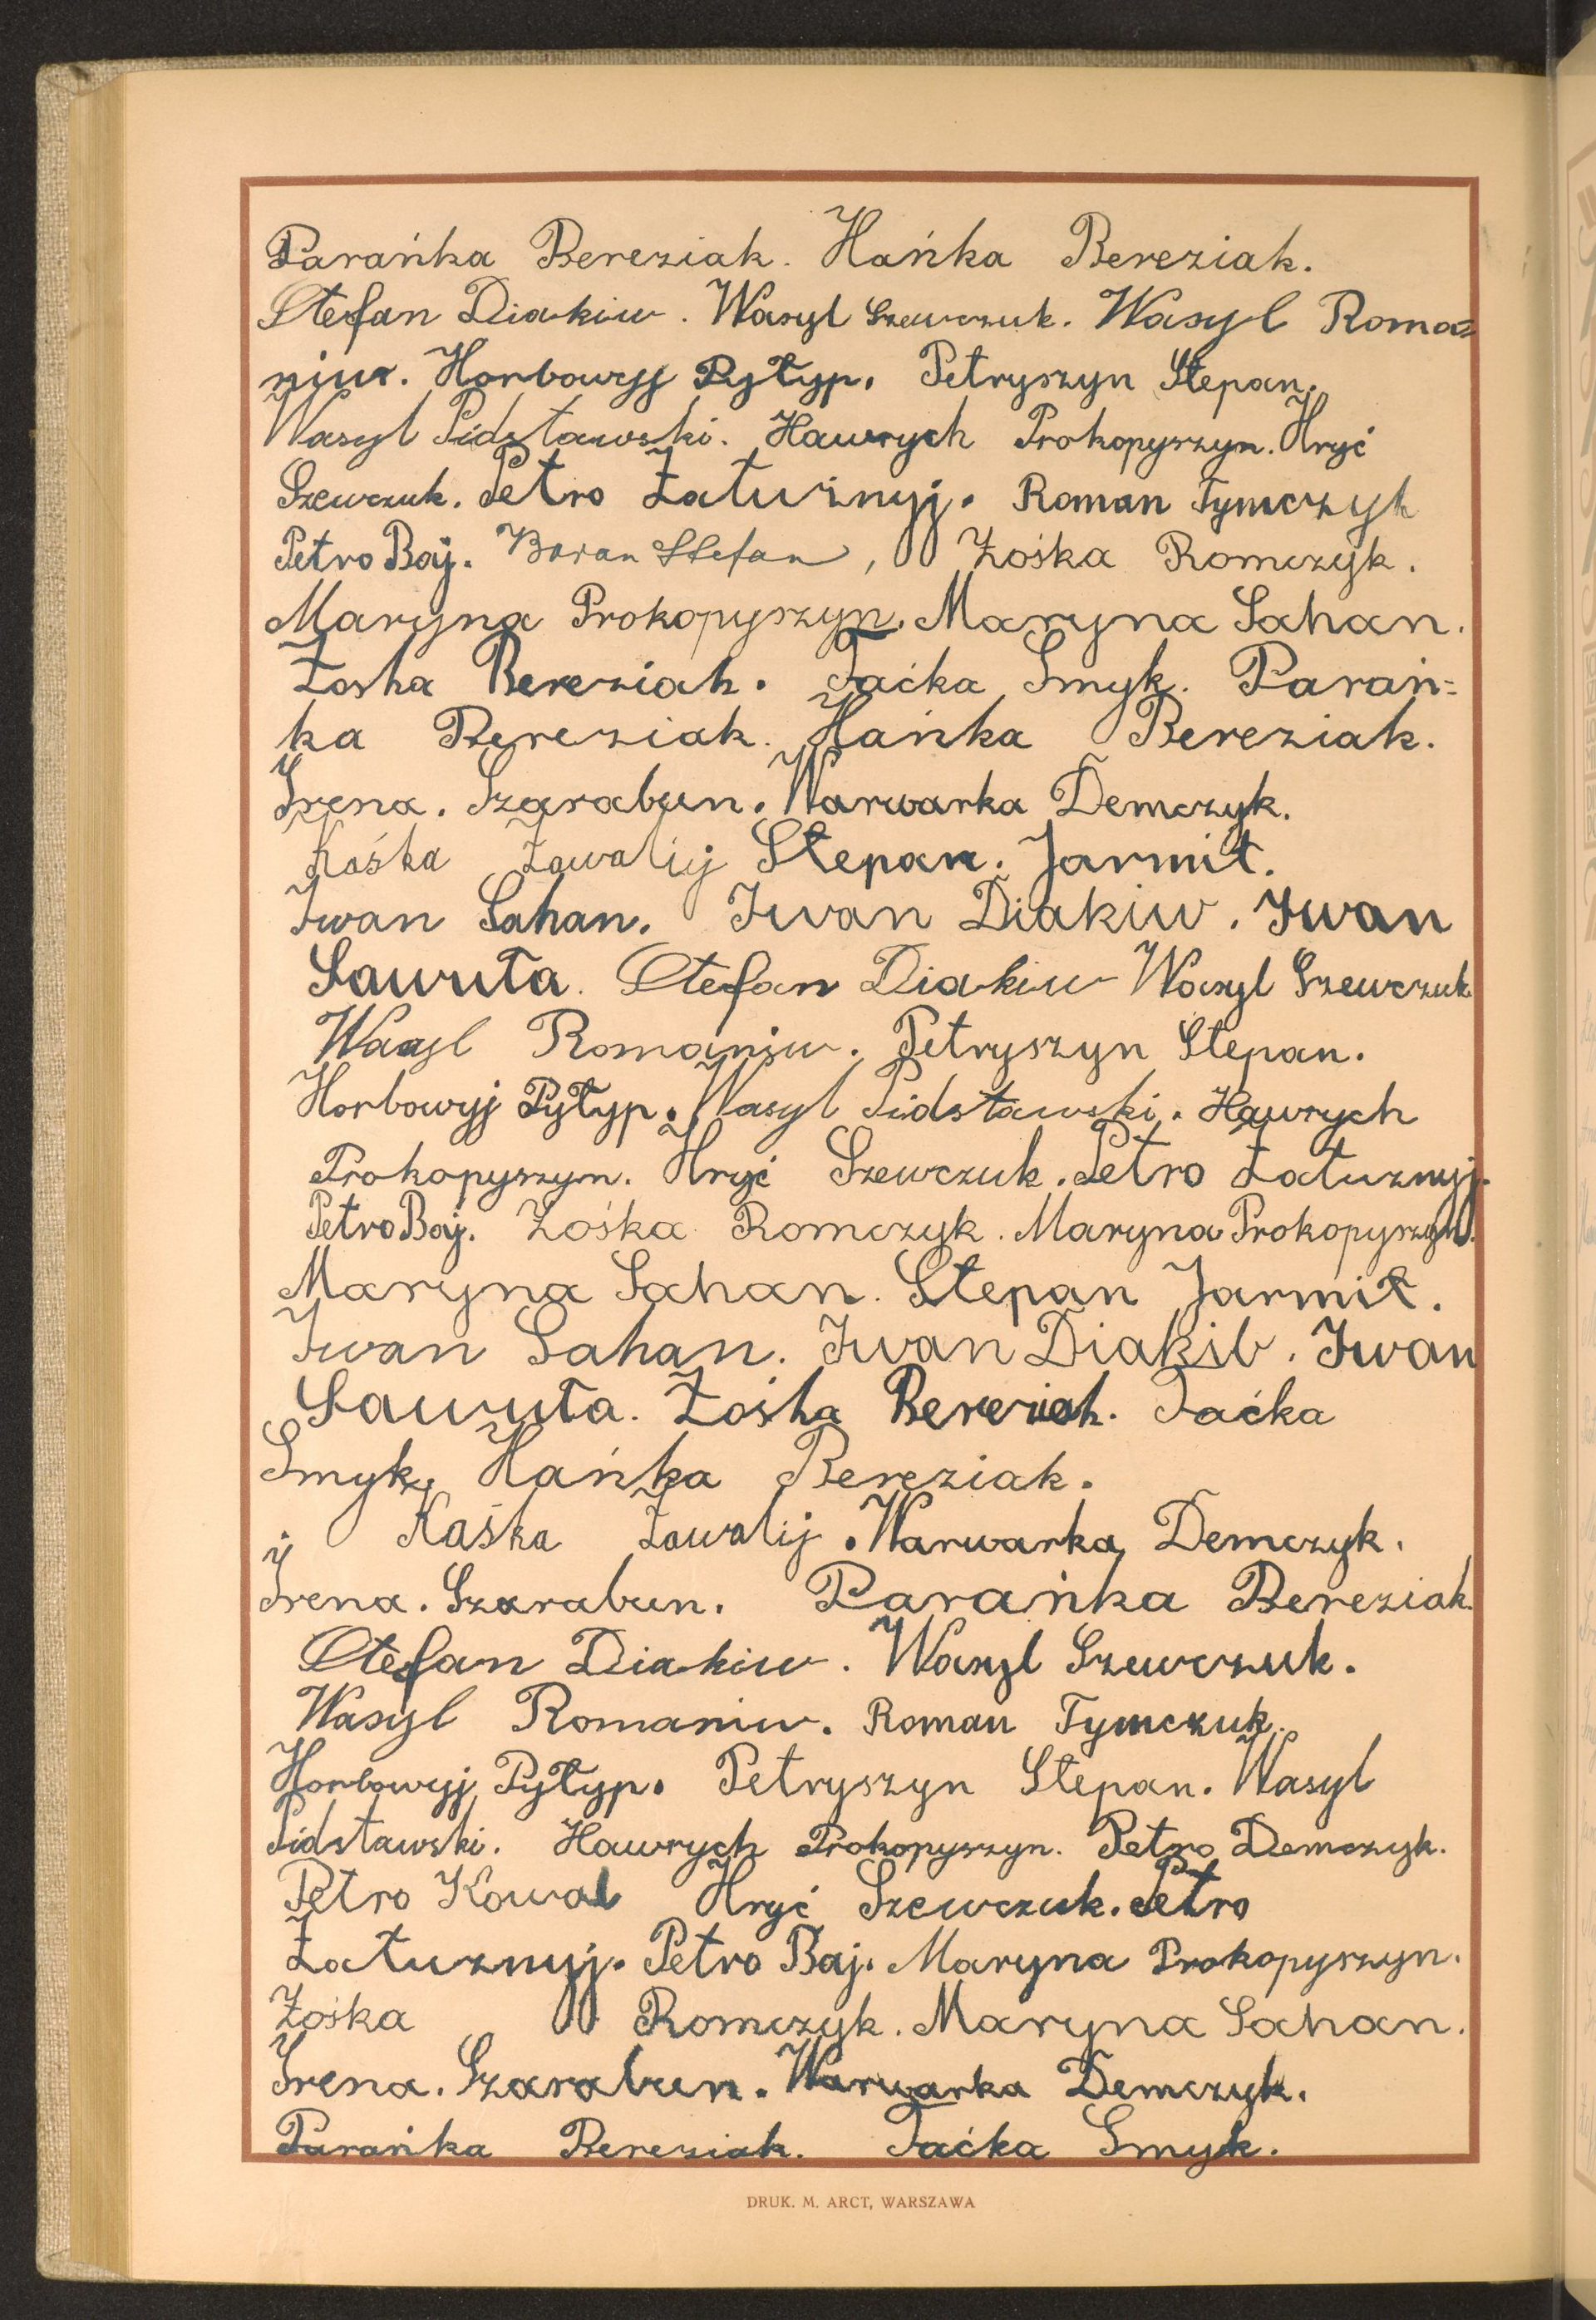 Parańka Bereziak. Hańka Bereziak.
Stefan Diakiw. Wasyl Szewczuk. Wasyl Roma=
niw. Horbowyj Pyłyp. Petryszyn Stepan.
Wasyl Pidstawski. Hawrych Prokopyszyn. Hryć
Szewczuk. Petro Załużnyj. Roman Tymczyk
Petro Baj. Baran Stefan, Zośka Romczyk.
Maryna Prokopyszyn. Maryna Sahan.
Zoska Bereziak. Taćka Smyk. Parań=
ka Bereziak. Hańka Bereziak.
Irena. Szaraburn. Warwarka Demczyk.
Kaśka Zawalij Stepan. Jarmit.
Iwan Sahan. Iwan Diakiw. Iwan
Sawuta. Stefan Diakiw Wasyl Szewczuk
Wasyl Romaniw. Petryszyn Stepan.
Horbowyj Pyłyp. Wasyl Pidstawski. Hawrych
Prokopyszyn. Hryć Szewczuk. Petro Załuznyj.
Petro Baj. Zośka Romczyk. Maryna Prokopyszyn.
Maryna Sahan. Stepan Jarmit.
Iwan Sahan. Iwan Diakiw. Iwan
Sawuta. Zośka Bereziak. Taćka
Smyk. Hańka Bereziak.
Kaśka Zawalij. Warwarka Demczyk.
Irena. Szarabun. Parańka Bereziak.
Stefan Diakiw. Wasyl Szewczuk.
Wasyl Romaniw. Roman Tymczuk.
Horbowyj Pyłyp. Petryszyn Stepan. Wasyl
Pidstawski. Hawrych Prokopyszyn. Petro Demczyk.
Petro Kowal Hryć Szewczuk. Petro
Załuznyj. Petro Baj. Maryna Prokopyszyn.
Zośka Romczyk. Maryna Sahan.
Irena. Szarabun. Warwarka Demczyk.
Parańka Bereziak. Taćka Smyk.
DRUK. M. ARCT, WARSZAWA